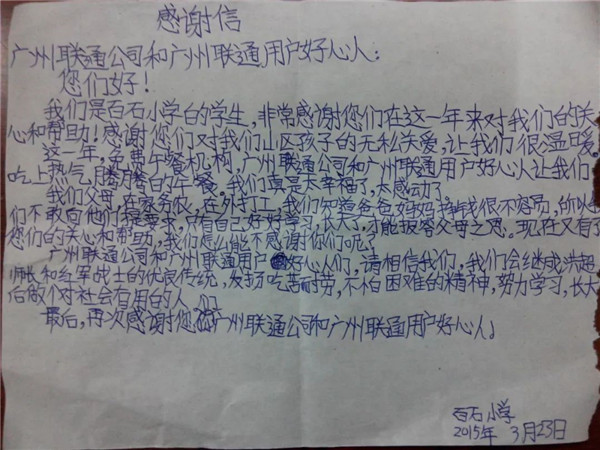 感谢信
广州联通公司和广州联通用户好心人：
您们好！
我们是百石小学的学生，非常感谢您们在这一年来对我们的关
心和帮助！感谢您们对我们山区孩子的无私关爱，让我们很温暖。
这一年，免费午餐机构，广州联通公司和广州联通用户好心人让我们
吃上热气腾腾的午餐。我们真是太幸福了，太感动了。
我们父母，在家务农，在外打工，我们知道爸爸妈妈挣钱很不容易，所以
们不敢向他们提要求，只有自己好好学习，长大了，才能报答父母之恩。现在又有了
您们的关心和帮助，我们怎么能不感谢你们呢？
广州联通公司和广州联通用户好心人们，请相信我们，我们会继成洪超
师长和红军战士的优良传统，发扬吃苦耐劳，不怕困难的精神，努力学习，长大
后做个对社会有用的人。
最后，再次感谢您们广州联通公司和广州联通用户好心人。
百石小学
2015年 3月23日